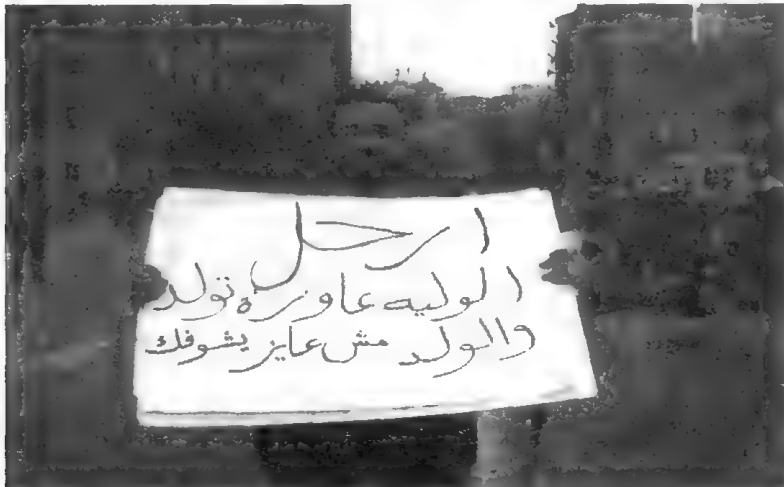 ارحل
الوليه عاوزه تولد
والولد مش عايز يشوفك